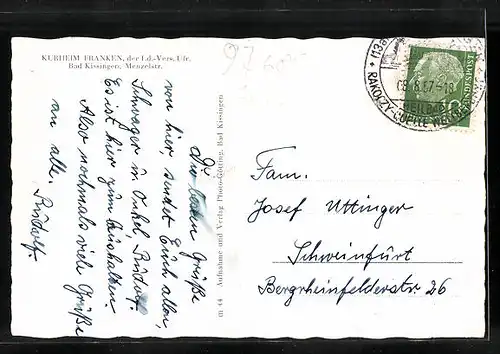 KURHEIM FRANKEN, der Ld.-Vers. Ufr.
Bad Kissingen, Menzelstr.
Die besten Grüße
von hier, sendet Euch allen,
Schwager u. Onkel Rudolf.
Es ist hier zum Aushalten.
Also nochmals viele Grüße
an alle. Rudolf.
m 44 Aufnahme und Verlag Photo-Götting, Bad Kissingen
(13a)
8.57-18
HEILBAD
RAKOCZY-QUELLE
Fam.
Josef Uttinger
Schweinfurt
Bergrheinfelderstr. 26